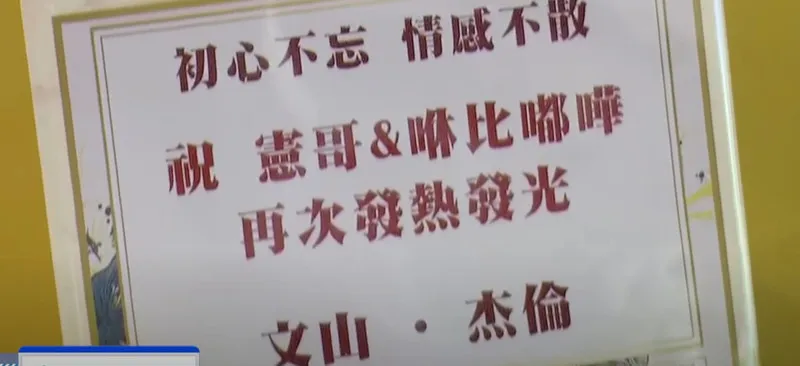 初心不忘 情感不散
祝 憲哥&咻比嘟嘩
再次發熱發光
文山・杰倫